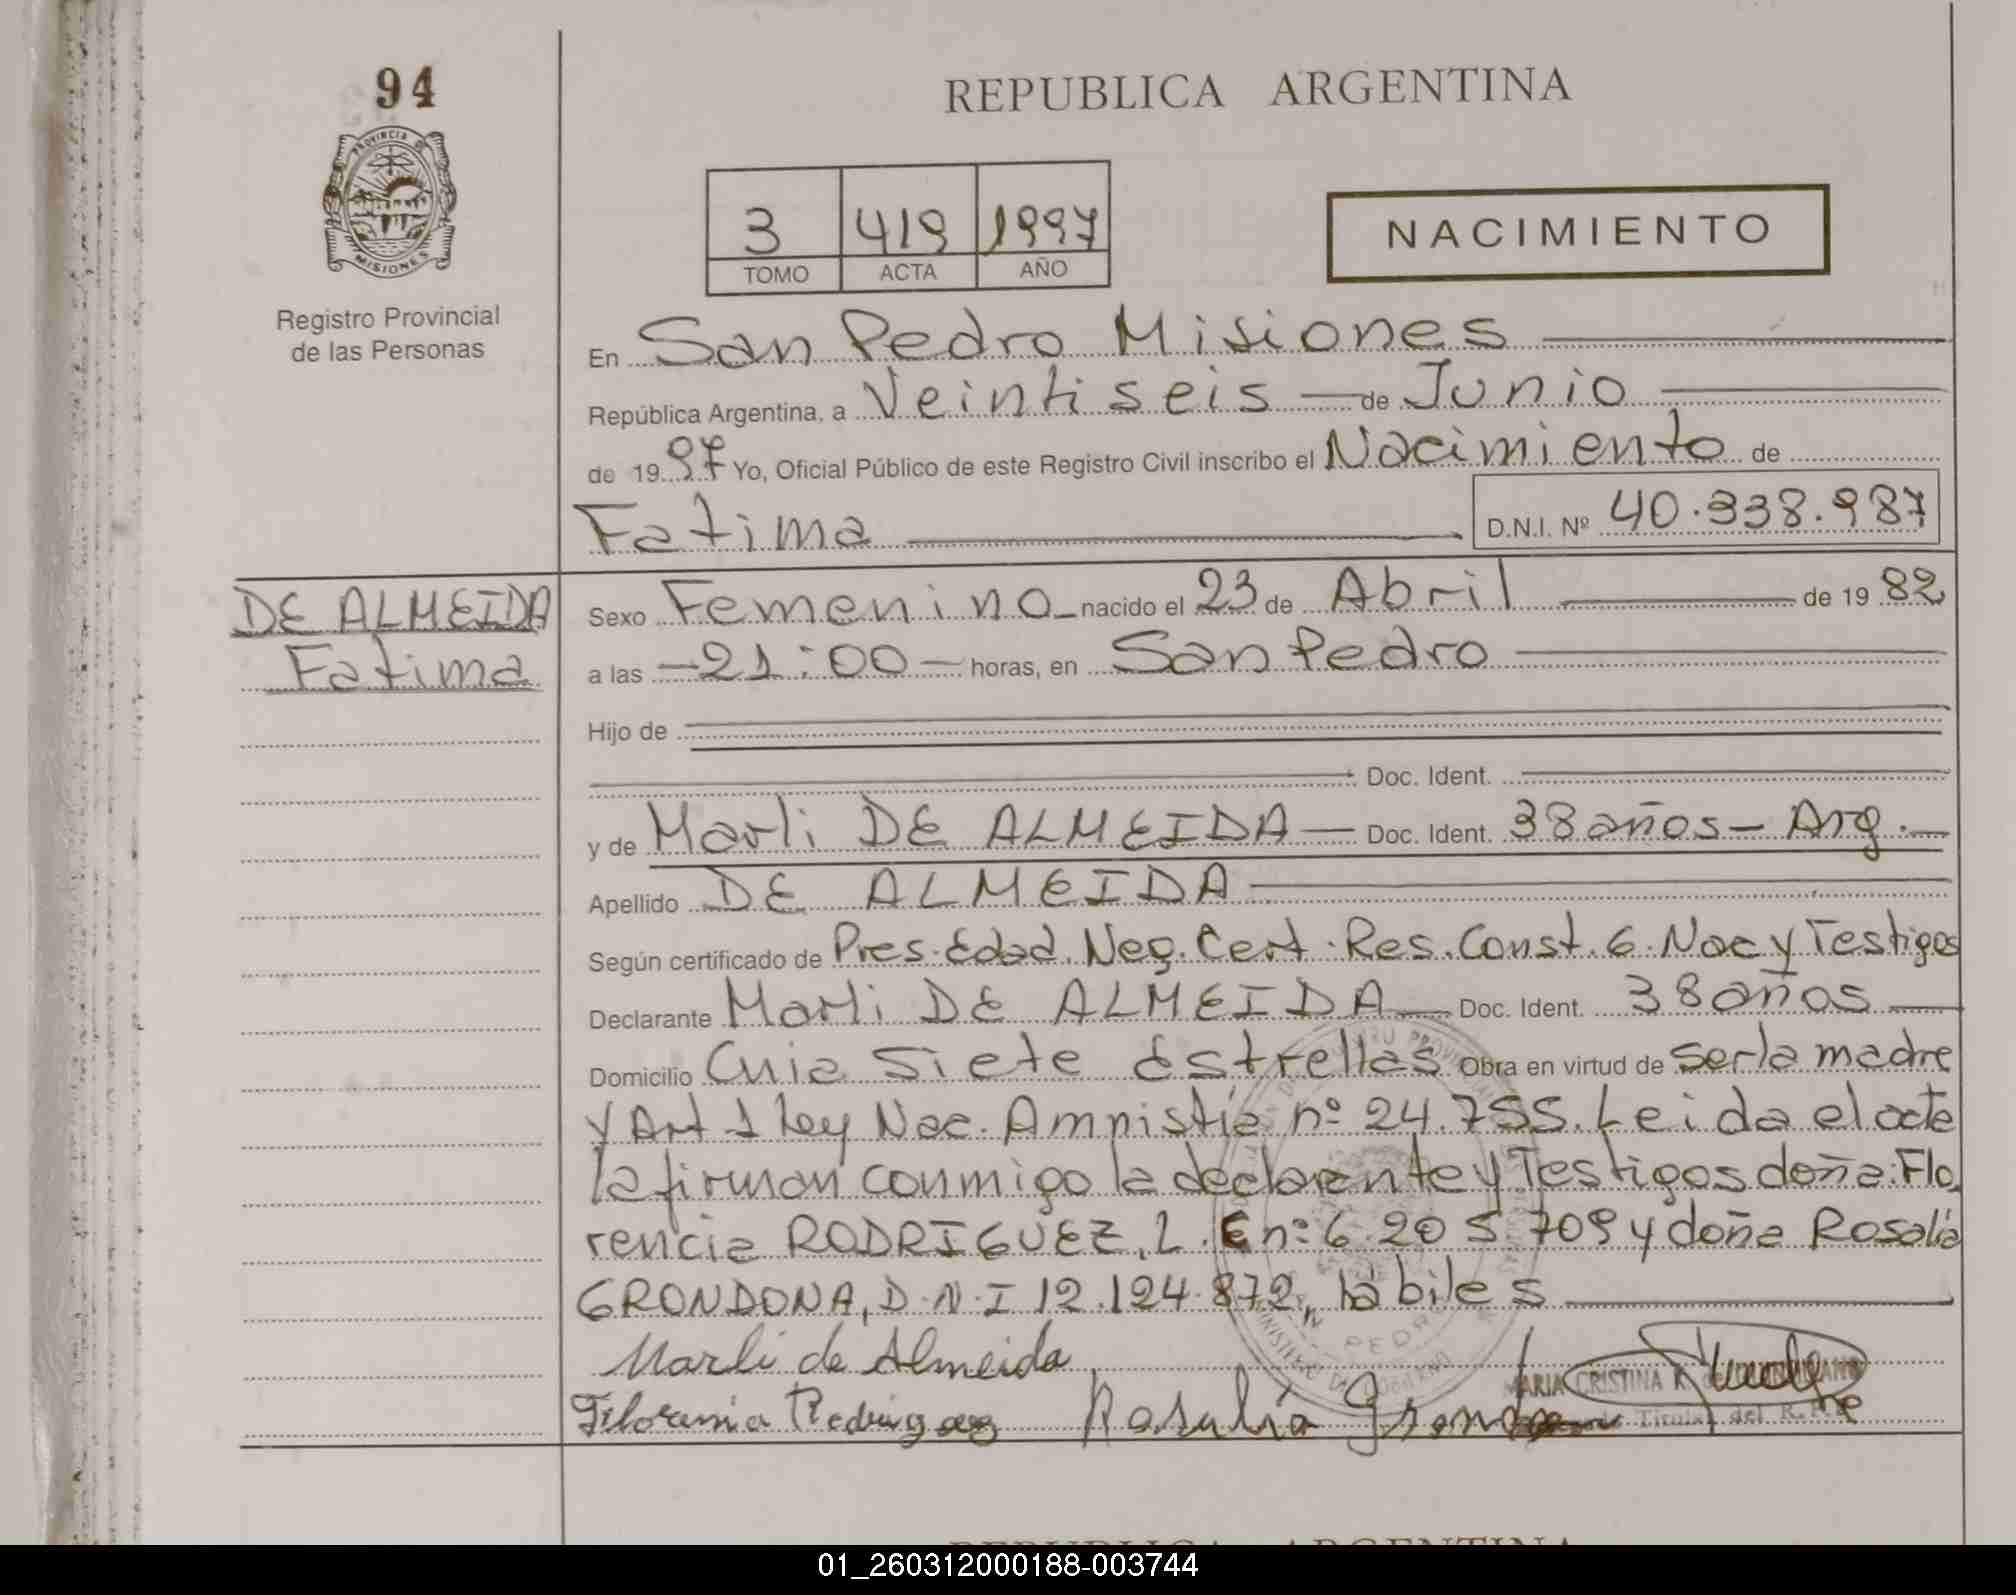 94
REPUBLICA ARGENTINA
PROVINCIA DE
MISIONES
3 419 1997
TOMO ACTA AÑO
NACIMIENTO
Registro Provincial
de las Personas
En San Pedro Misiones
República Argentina, a Veintiseis de Junio
de 1997 Yo, Oficial Público de este Registro Civil inscribo el Nacimiento de
Fatima D.N.I. Nº 40.338.987
DE ALMEIDA
Fatima
Sexo Femenino nacido el 23 de Abril de 1982
a las -21:00- horas, en San Pedro
Hijo de
Doc. Ident.
y de Marli DE ALMEIDA — Doc. Ident. 38 años - Arg.
Apellido DE ALMEIDA
Según certificado de Pres. Edad. Neg. Cert. Res. Const. 6. Nac y Testigos
Declarante Marli DE ALMEIDA Doc. Ident. 38 años
Domicilio Cuia Siete Estrellas Obra en virtud de ser la madre
y Art 1 ley Nac. Amnistía nº 24.755. Leida el acta
la firman conmigo la declarante y Testigos doña: Flo
rencia RODRIGUEZ, L. E nº 6.205.709 y doña Rosalía
GRONDONA, D.N.I 12.124.872, hábiles
Marli de Almeida
Rosalía
MARIA CRISTINA R.
Titular del R.P.
REPUBLICA ARGENTINA
01_260312000188-003744